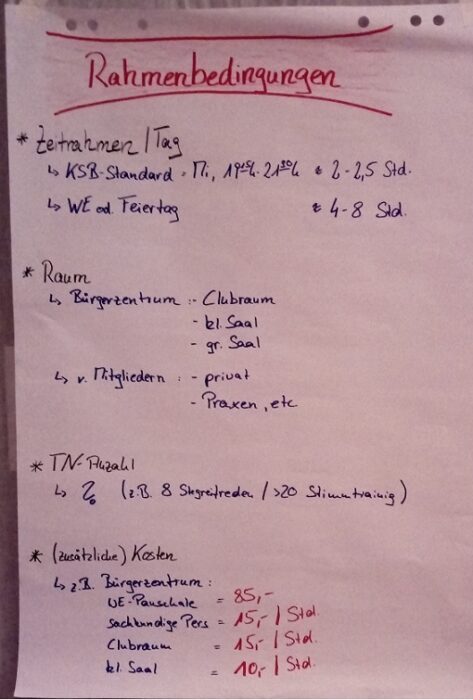 Rahmenbedingungen
* Zeitrahmen / Tag
↳ KSB-Standard = Mi, 19 h - 21³⁰h ≈ 2-2,5 Std.
↳ WE od. Feiertag ≈ 4-8 Std.
* Raum
↳ Bürgerzentrum :- Clubraum
- kl. Saal
- gr. Saal
↳ v. Mitgliedern : - privat
- Praxen, etc
* TN-Anzahl
↳ ? (z.B. 8 Stegreifreden / >20 Stimmtrainig)
* (zusätzliche) Kosten
↳ z.B. Bürgerzentrum :
WE-Pauschale = 85,-
sachkundige Pers = 15,- / Std.
Clubraum = 15,- / Std.
kl. Saal = 10,- / Std.